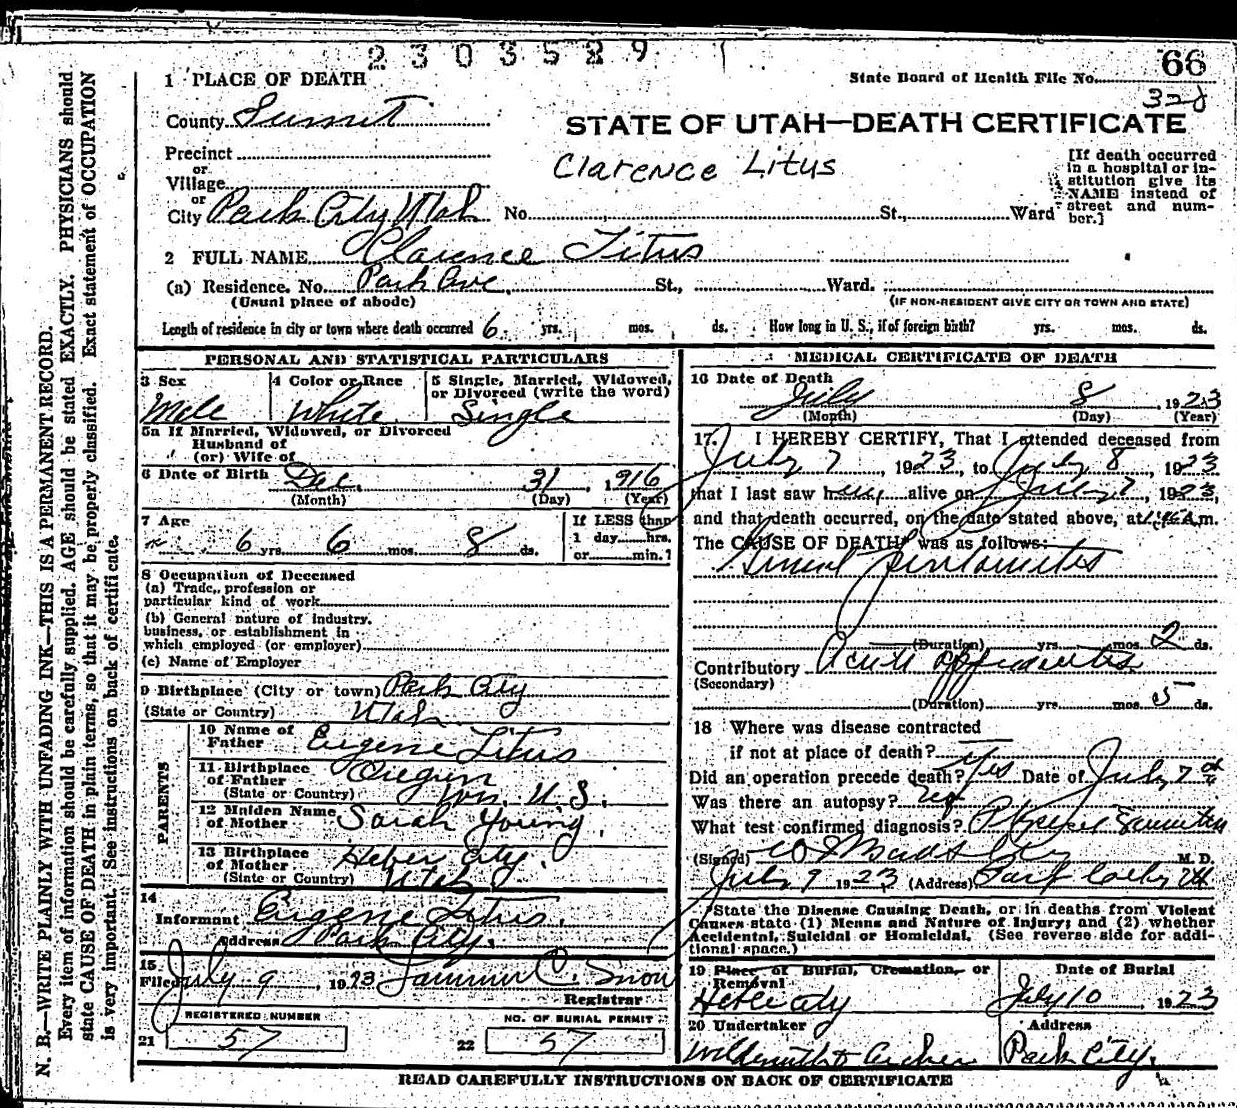 2303529
66
1 PLACE OF DEATH
State Board of Health File No.
328
County Summit
STATE OF UTAH—DEATH CERTIFICATE
Precinct
or
Village
or
City Park City, Utah No. St., Ward
Clarence Litus
[If death occurred
in a hospital or in-
stitution give its
NAME instead of
street and num-
ber.]
2 FULL NAME Clarence Titus
(a) Residence. No. Park Ave. St., Ward.
(Usual place of abode)
(IF NON-RESIDENT GIVE CITY OR TOWN AND STATE)
Length of residence in city or town where death occurred 6 yrs. mos. ds. How long in U. S., if of foreign birth? yrs. mos. ds.
PERSONAL AND STATISTICAL PARTICULARS
3 Sex
Male
4 Color or Race
White
5 Single, Married, Widowed,
or Divorced (write the word)
Single
5a If Married, Widowed, or Divorced
Husband of
(or) Wife of
6 Date of Birth Dec. 31, 1916
(Month) (Day) (Year)
7 Age
6 yrs. 6 mos. 8 ds.
If LESS than
1 day hrs.
or min.?
8 Occupation of Deceased
(a) Trade, profession or
particular kind of work
(b) General nature of industry.
business, or establishment in
which employed (or employer)
(c) Name of Employer
9 Birthplace (City or town) Park City
(State or Country) Utah
PARENTS
10 Name of
Father Eugene Titus
11 Birthplace
of Father Oregon
(State or Country) U.S.
12 Maiden Name
of Mother Sarah Young
13 Birthplace
of Mother Heber City.
(State or Country) Utah
14
Informant Eugene Titus.
Address Park City.
15
Filed July 9 1923 C. Snow
Registrar
REGISTERED NUMBER
21 57
NO. OF BURIAL PERMIT
22 57
MEDICAL CERTIFICATE OF DEATH
16 Date of Death
July 8, 1923
(Month) (Day) (Year)
17. I HEREBY CERTIFY, That I attended deceased from
July 7, 1923, to July 8, 1923
that I last saw him alive on July 7, 1923,
and that death occurred, on the date stated above, at m.
The CAUSE OF DEATH was as follows:
General Peritonitis
(Duration) yrs. mos. 2 ds.
Contributory Acute appendicitis
(Secondary)
(Duration) yrs. mos. 5 ds.
18 Where was disease contracted
if not at place of death?
Did an operation precede death? Yes Date of July 7
Was there an autopsy?
What test confirmed diagnosis? Physical
(Signed) M. D.
July 9 1923 (Address) Park City Ut
State the Disease Causing Death, or in deaths from Violent
Causes state (1) Means and Nature of Injury; and (2) whether
Accidental, Suicidal or Homicidal. (See reverse side for addi-
tional space.)
19 Place of Burial, Cremation, or
Removal
Heber City
Date of Burial
July 10 1923
20 Undertaker
Archer
Address
Park City.
READ CAREFULLY INSTRUCTIONS ON BACK OF CERTIFICATE
N. B.—WRITE PLAINLY WITH UNFADING INK—THIS IS A PERMANENT RECORD.
Every item of information should be carefully supplied. AGE should be stated EXACTLY. PHYSICIANS should
state CAUSE OF DEATH in plain terms, so that it may be properly classified. Exact statement of OCCUPATION
is very important. See instructions on back of certificate.